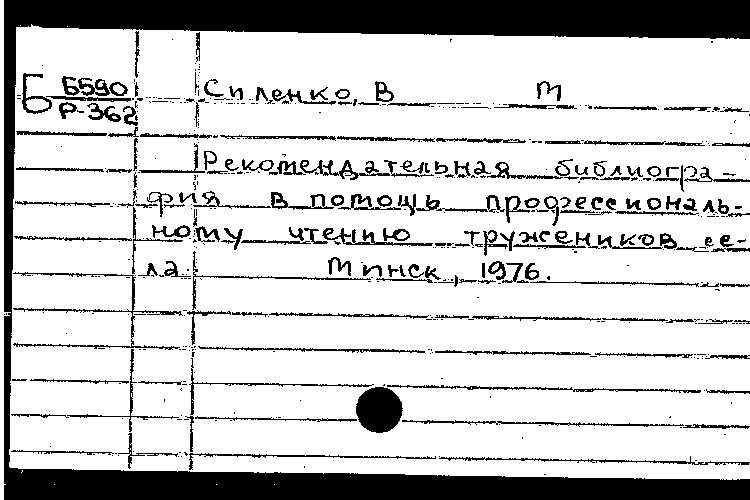 Б Б590
Р-362
Силенко, В М
Рекомендательная библиогра-
фия в помощь профессиональ-
ному чтению тружеников се-
ла. Минск, 1976.